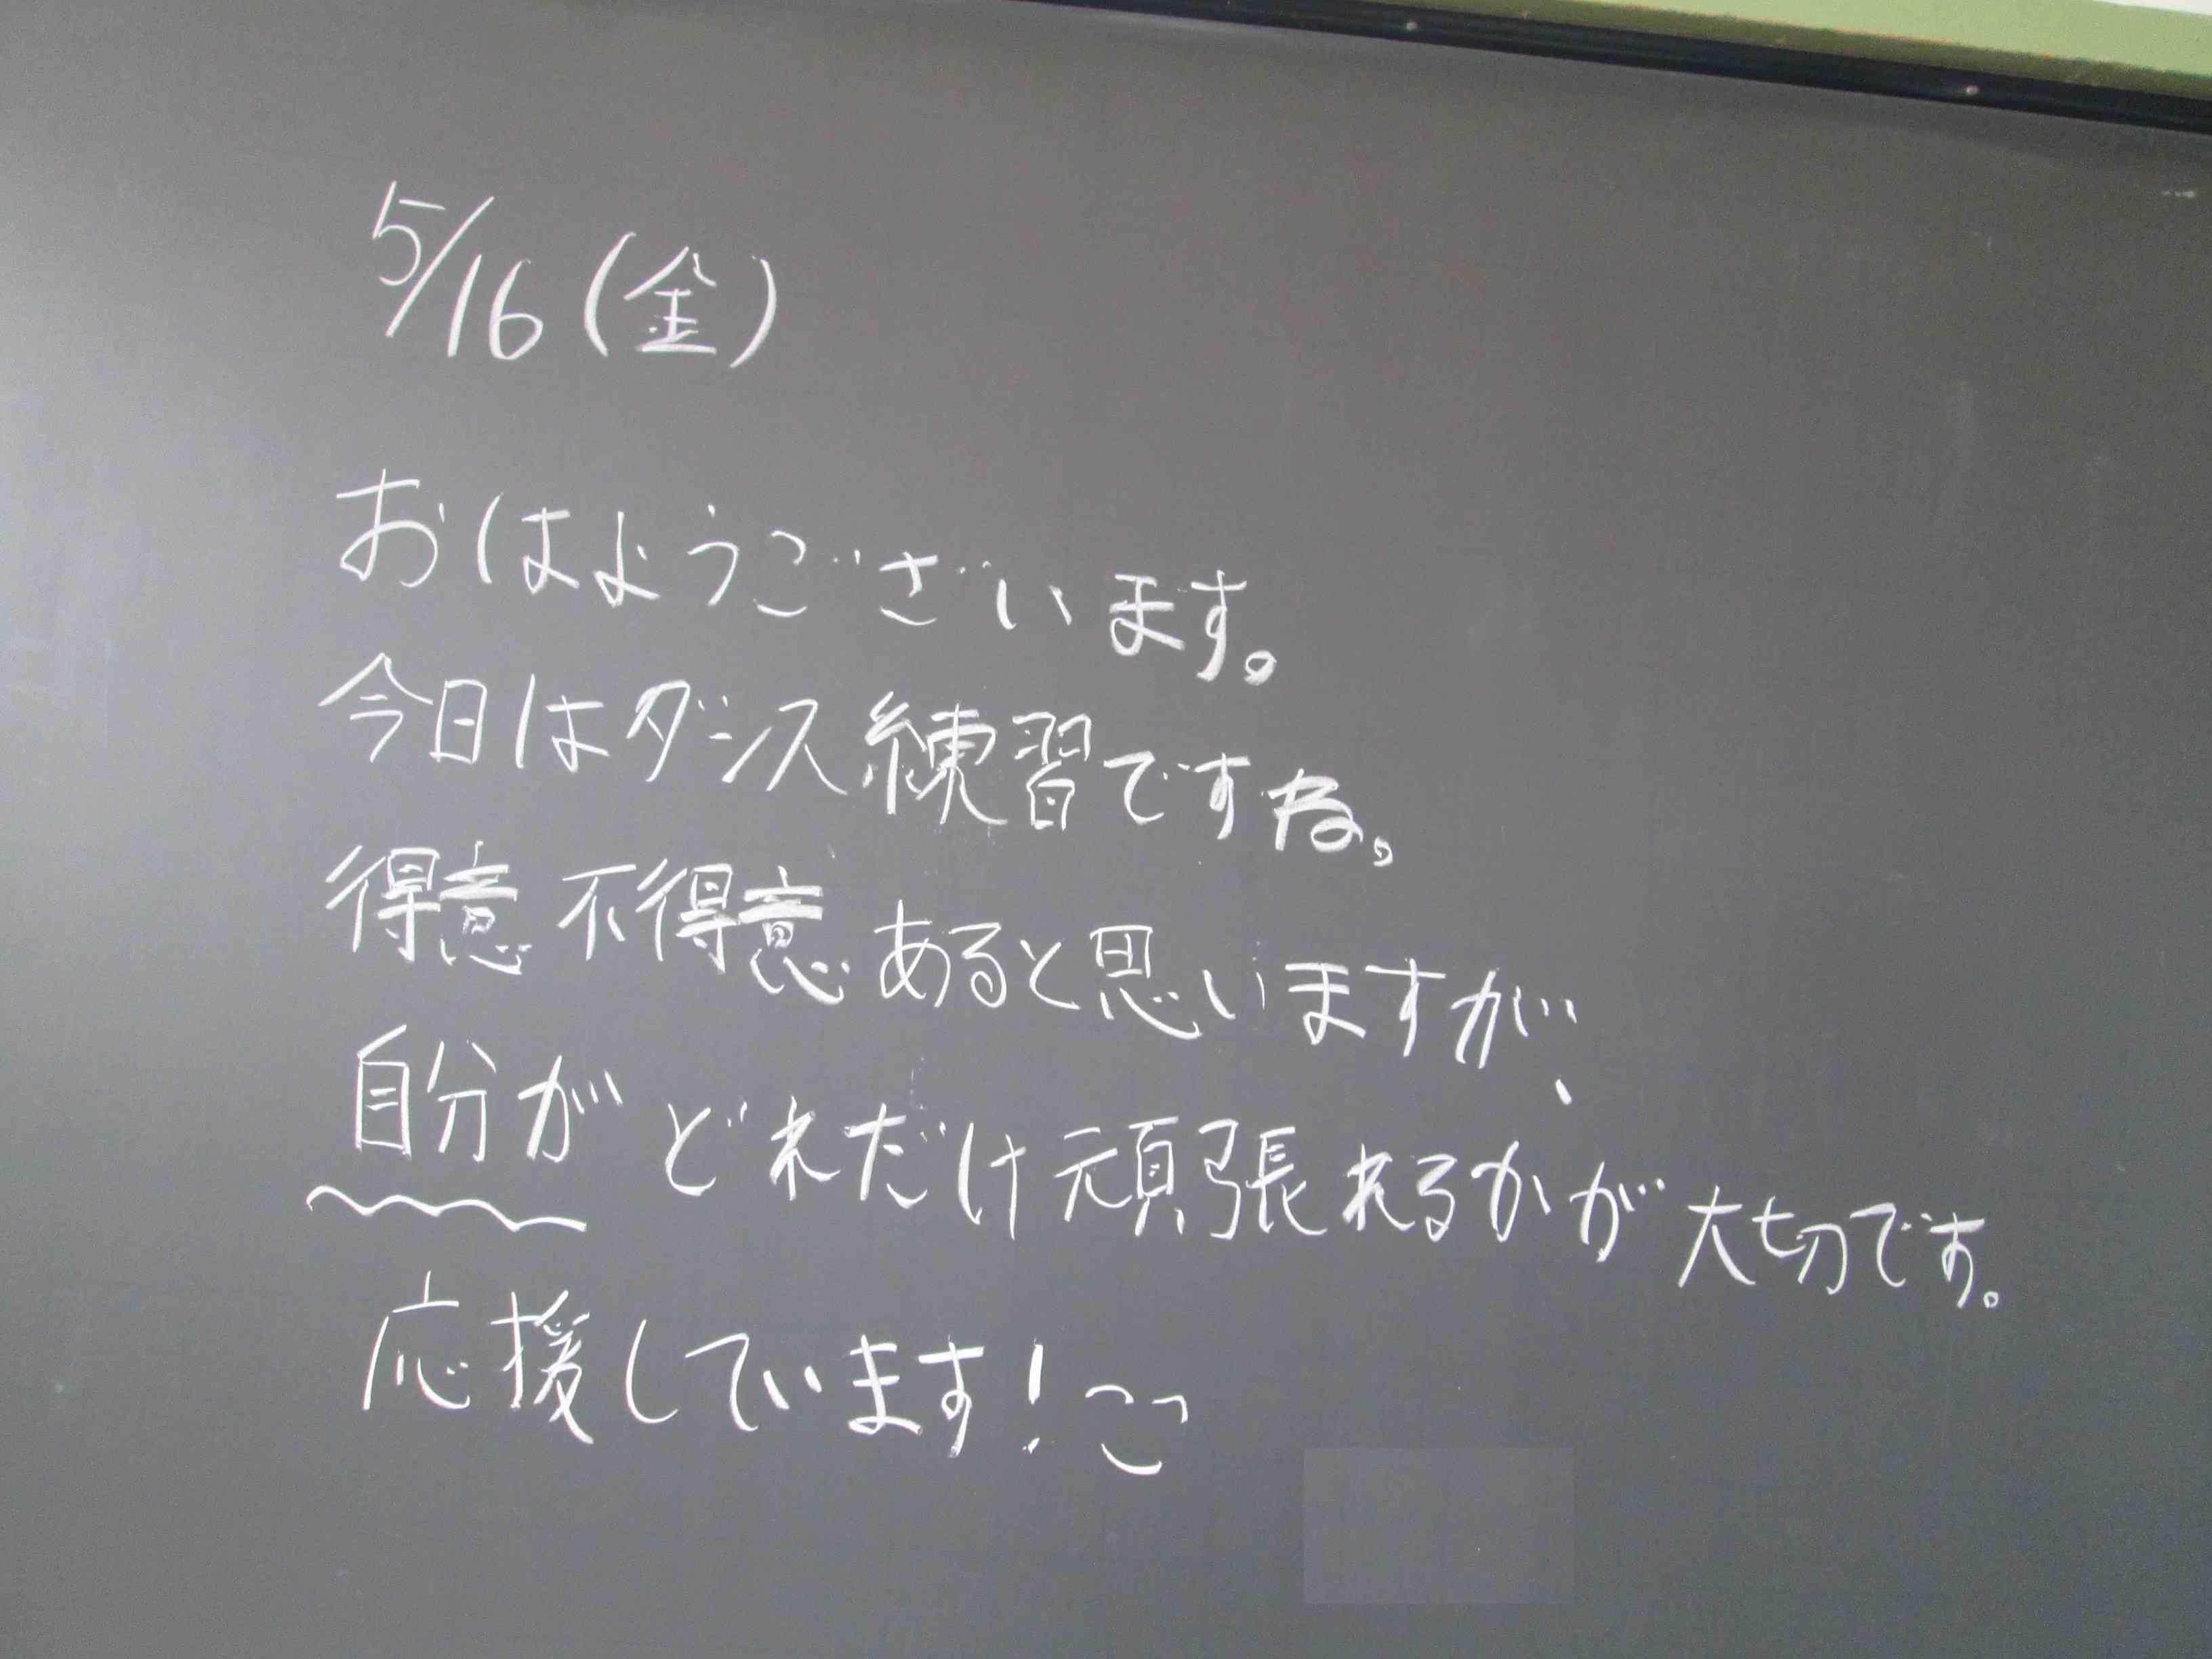 5/16(金)
おはようございます。
今日はダンス練習ですね。
得意不得意あると思いますが、
自分がどれだけ頑張れるかが大切です。
応援しています!